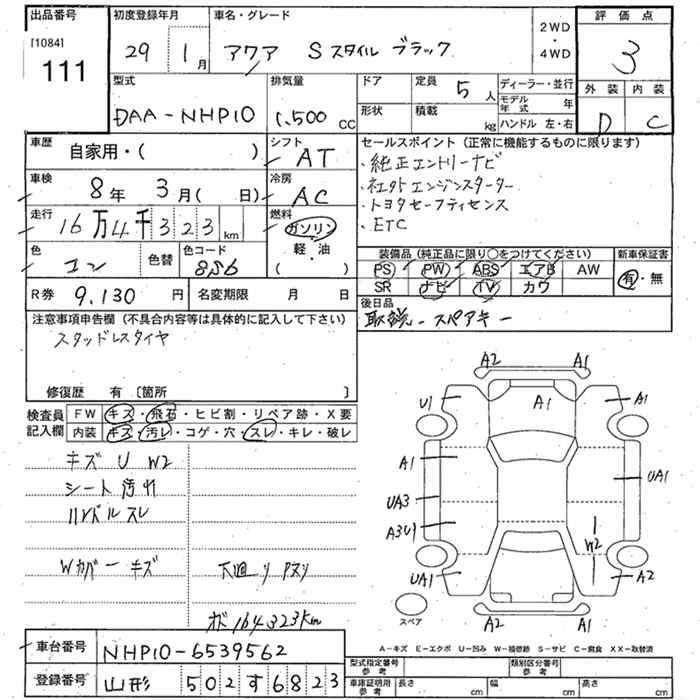 出品番号
[1084]
111
初度登録年月
29 年 1 月
車名・グレード
アクア S スタイル ブラック
2WD
・
4WD
評価点
3
外装 内装
D C
型式
DAA-NHP10
排気量
1.500 cc
ドア 定員 5 人
形状 積載 kg
ディーラー・並行
モデル年式 年
ハンドル 左・右
車歴
自家用・( )
シフト
AT
車検
8年 3月( 日)
冷房
AC
走行
16万4千323km
燃料
ガソリン
軽・油
( )
色
コン
色替
色コード
8S6
R券 9.130 円
名変期限 月 日
セールスポイント(正常に機能するものに限ります)
・純正エントリーナビ
・社外エンジンスターター
・トヨタセーフティセンス
・ETC
装備品(純正品に限り○をつけてください)
PS PW ABS エアB AW
SR ナビ TV カワ
新車保証書
有・無
後日品
取説-スペアキー
注意事項申告欄(不具合内容等は具体的に記入して下さい)
スタッドレスタイヤ
修復歴 有〔箇所 〕
検査員
記入欄
FW キズ・飛石・ヒビ割・リペア跡・X要
内装 キズ・汚レ・コゲ・穴・スレ・キレ・破レ
キズ U W2
シート汚れ
ハンドルスレ
Wカバーキズ
下廻りPスリ
ポ 164323km
A2 A1
U1 A1 A1
A1 UA1
UA3
A3U1 W2
UA1 A2
A2 A1
スペア
A-キズ E-エクボ U-凹み W-補修跡 S-サビ C-腐食 XX-取替済
車台番号
NHP10-6539562
登録番号
山形 502す6823
型式指定番号
参考
類別区分番号
参考
車庫証明用
参考
長さ cm 幅 cm 高さ cm